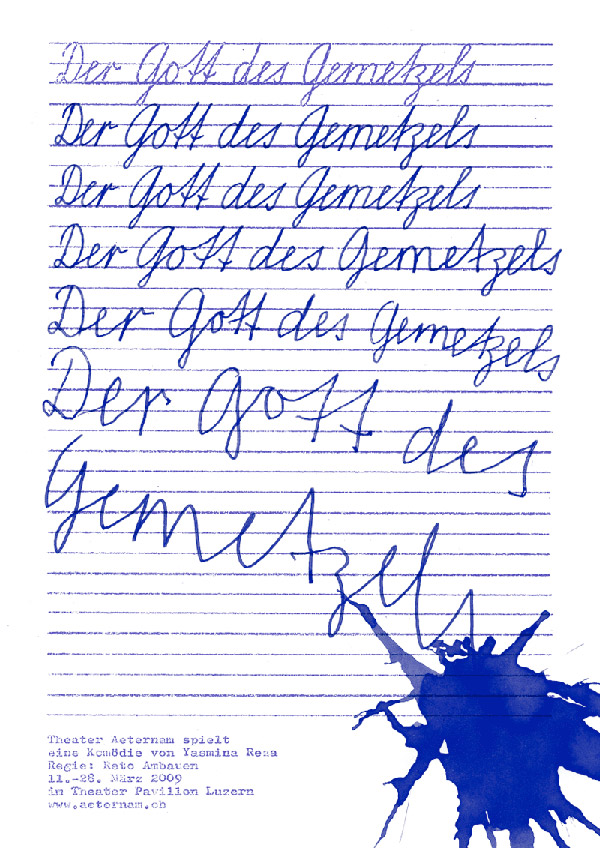 Der Gott des Gemetzels
Der Gott des Gemetzels
Der Gott des Gemetzels
Der Gott des Gemetzels
Der Gott des Gemetzels
Der Gott des
Gemetzels
Theater Aeternam spielt
eine Komödie von Yasmina Reza
Regie: Reto Ambauen
11.-28. März 2009
im Theater Pavillon Luzern
www.aeternam.ch